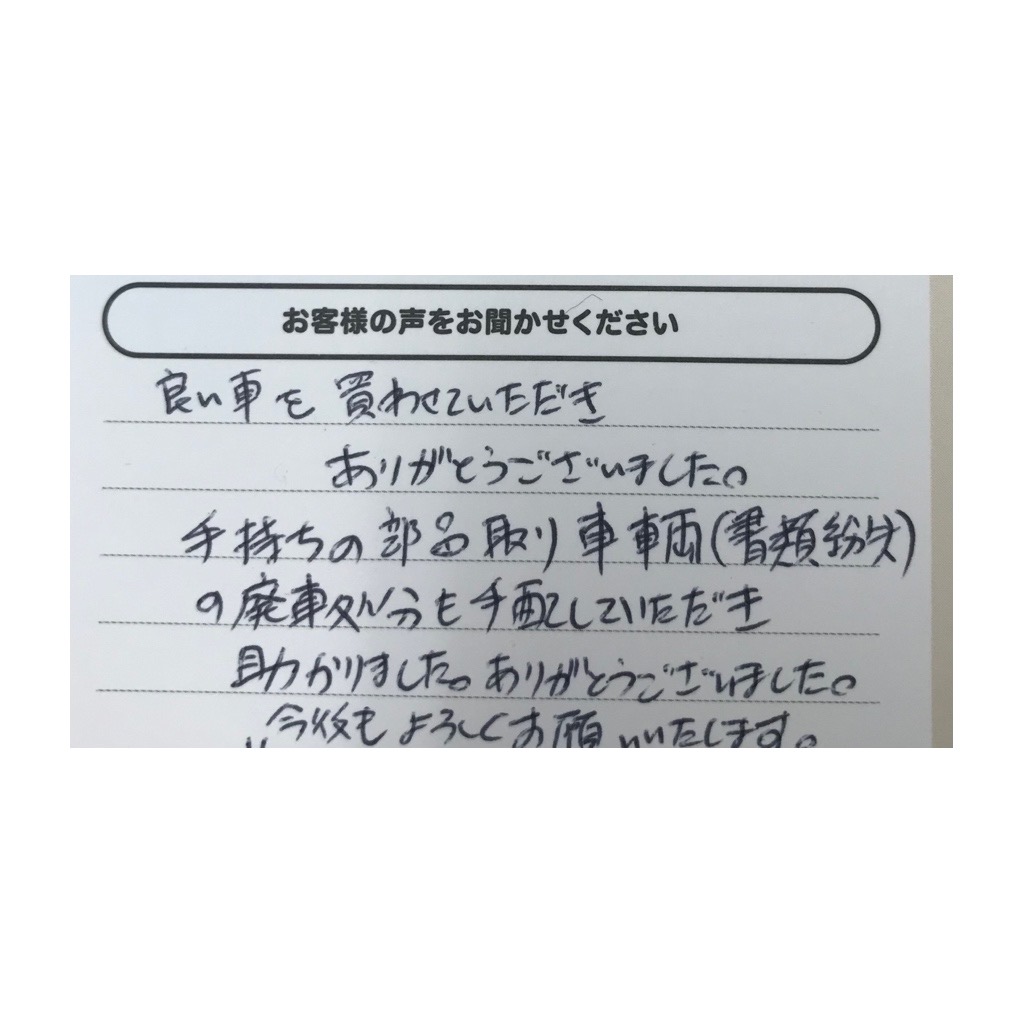 お客様の声をお聞かせください
良い車を買わせていただき
ありがとうございました。
手持ちの部品取り車車両(書類紛失)
の廃車処分も手配していただき
助かりました。ありがとうございました。
今後もよろしくお願いいたします。